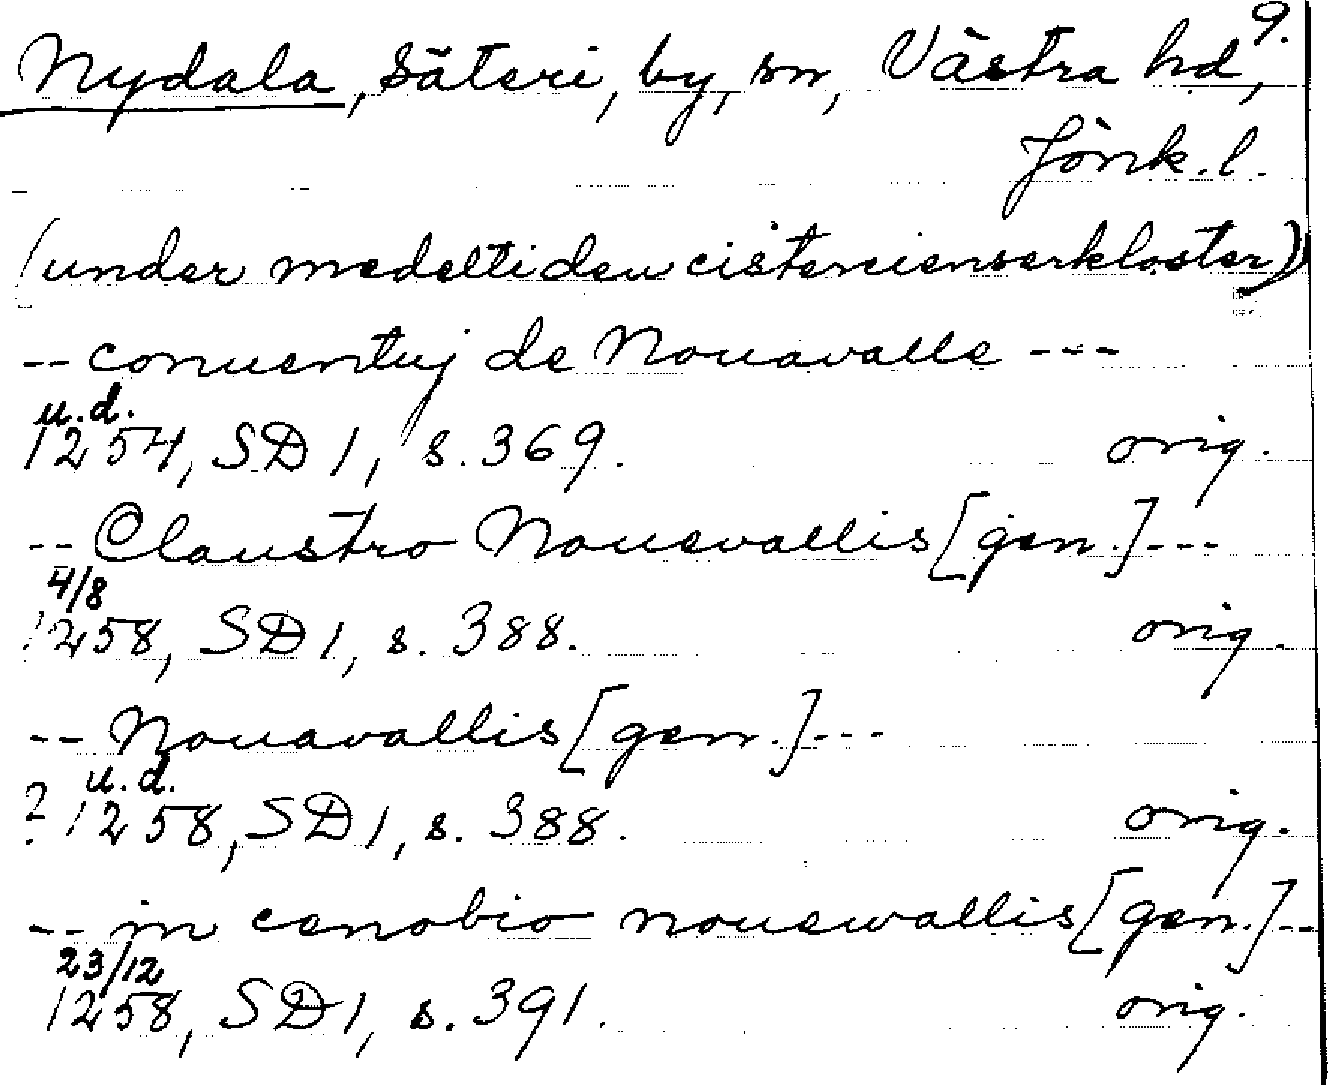 9.
Nydala, säteri, by, sn, Västra hd,
Jönk. l.
(under medeltiden cistercienserkloster)
-- conuentuj de Nouavalle ---
u.d.
1254, SD 1, s. 369. orig.
-- Claustro Nouevallis [gen.] ---
4/8
1258, SD 1, s. 388. orig.
-- Nouavallis [gen.] ---
u.d.
? 1258, SD 1, s. 388. orig.
-- in cenobio nouewallis [gen.] --
23/12
1258, SD 1, s. 391. orig.